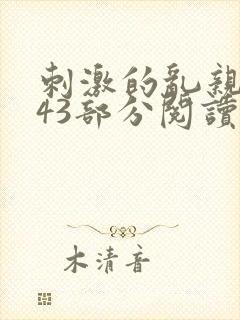 刺激的亂親
43部分閱讀
木清音